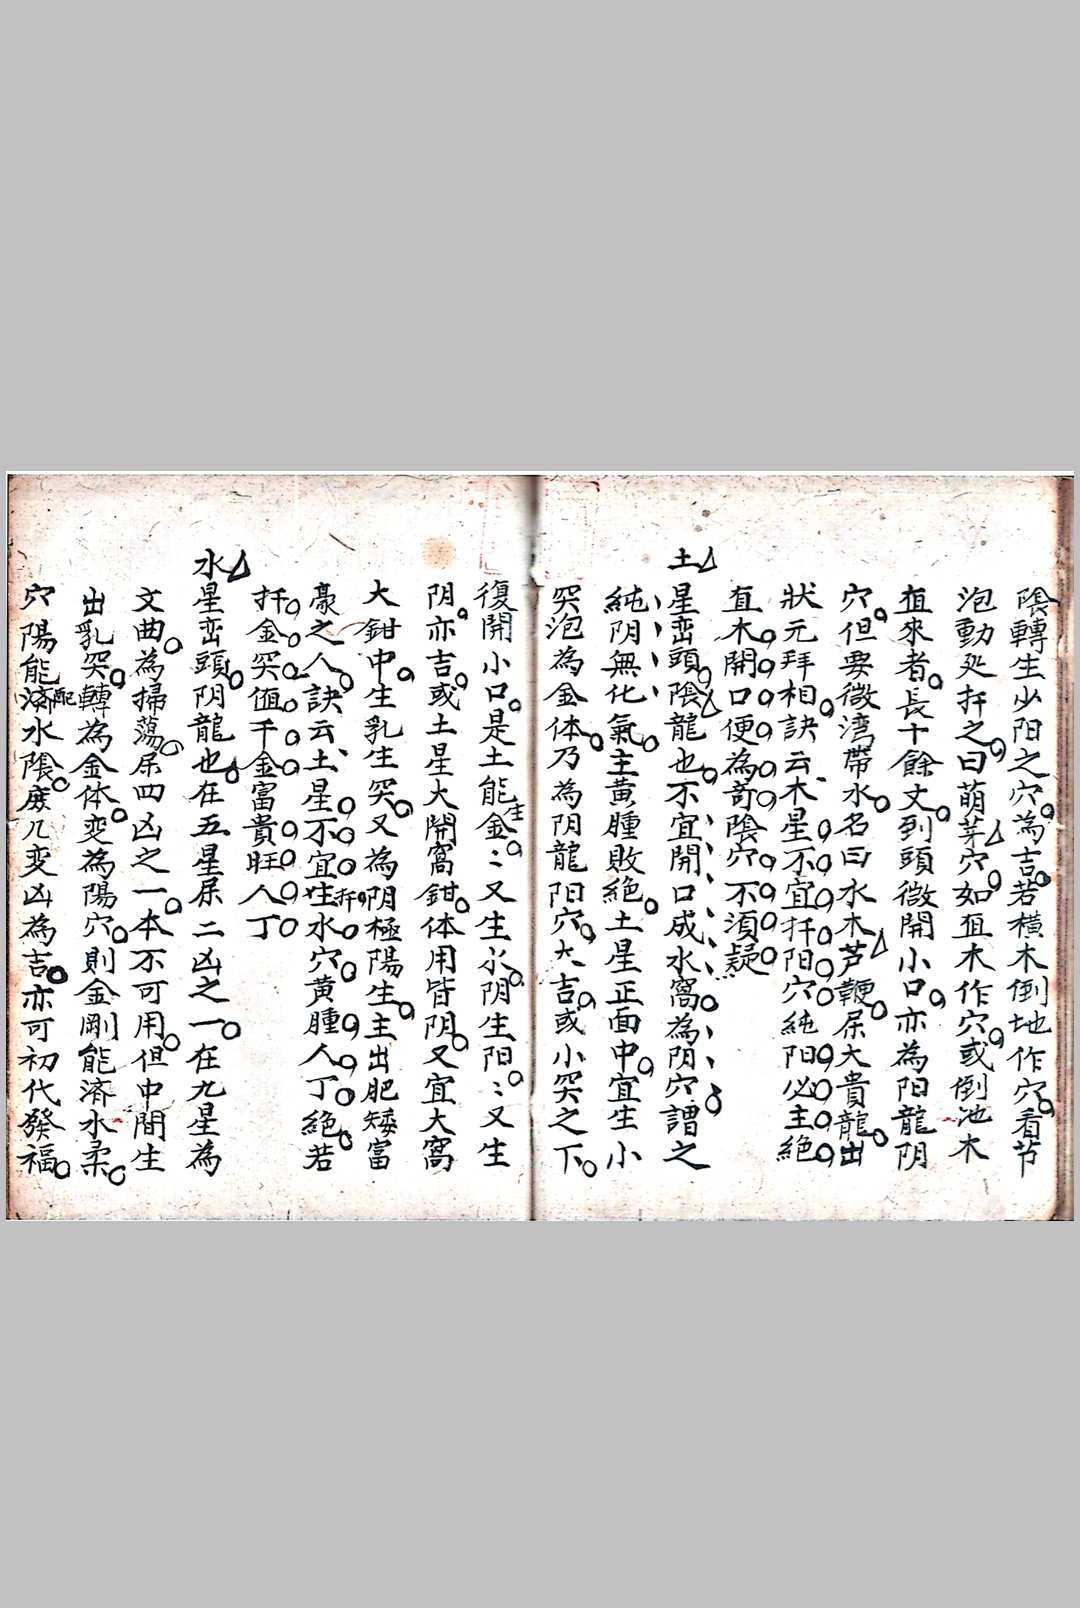 陰轉生少阳之穴为吉若橫木倒地作穴看节
泡動处扦之曰萌芽穴如直木作穴或倒地木
直來者長十餘丈到頭微開小口亦為阳龍阴
穴但要微湾帶水名曰水木芦鞭屬大貴龍出
狀元拜相訣云木星不宜扦阳穴純阳必主絕
直木開口便為奇陰穴不須疑
土星峦頭陰龍也不宜開口成水窩為阴穴謂之
純阴無化氣主黃腫敗絕土星正面中宜生小
突泡為金体乃為阴龍阳穴大吉或小突之下
復開小口是土能生金〻又生水阴生阳〻又生
阴亦吉或土星大開窩鉗体用皆阴又宜大窩
大鉗中生乳生突又為阴極陽生主出肥矮富
豪之人訣云土星不宜扦水穴黃腫人丁絕若
扦金突值千金富貴旺人丁
水星峦頭阴龍也在五星屬二凶之一在九星為
文曲為掃蕩屬四凶之一本不可用但中間生
出乳突轉為金体变為陽穴則金剛能済水柔
穴陽能配水陰庶几变凶為吉亦可初代發福